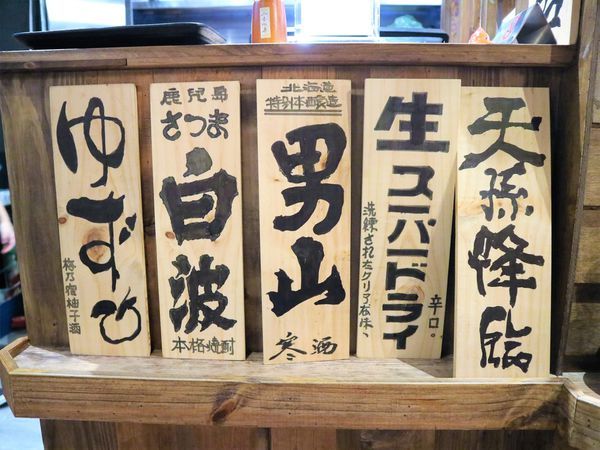 ゆずひ
梅乃宿柚子酒
鹿児島
さつま
白波
本格焼酎
北海道
特別本醸造
男山
寒酒
生スーパードライ
洗練されたクリアな味、
辛口。
天孫降臨